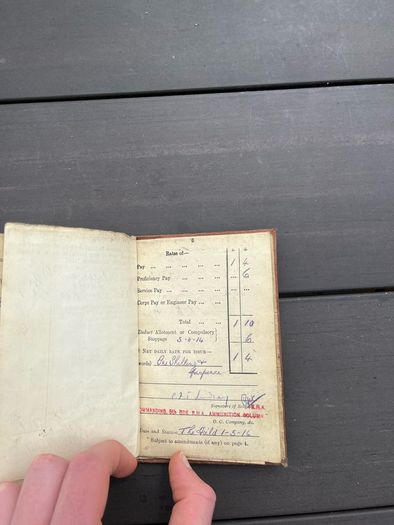 Rates of—
Pay ... ... ... ... ... 1 4
Proficiency Pay ... ... ... 6
Service Pay ... ... ... ... ...
Corps Pay or Engineer Pay ... ...
Total ... ... 1 10
Deduct Allotment or Compulsory
Stoppages 5-8-14 6
NET DAILY RATE FOR ISSUE— 1 4
words) One Shilling &
fourpence
Signature of
COMMANDING, 5th BDE. R.H.A. AMMUNITION COLUMN
O. C. Company, &c.
Date and Station The Field 1-5-16
Subject to amendments (if any) on page 4.